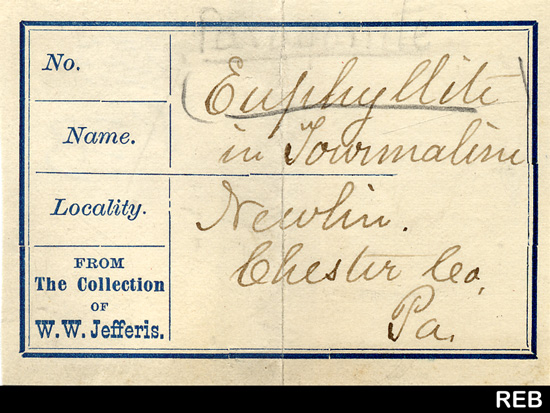 Paragonite
No.
(Euphyllite)
Name.
in Tourmaline
Locality.
Newlin.
Chester Co.
Pa.
FROM
The Collection
OF
W.W. Jefferis.
REB